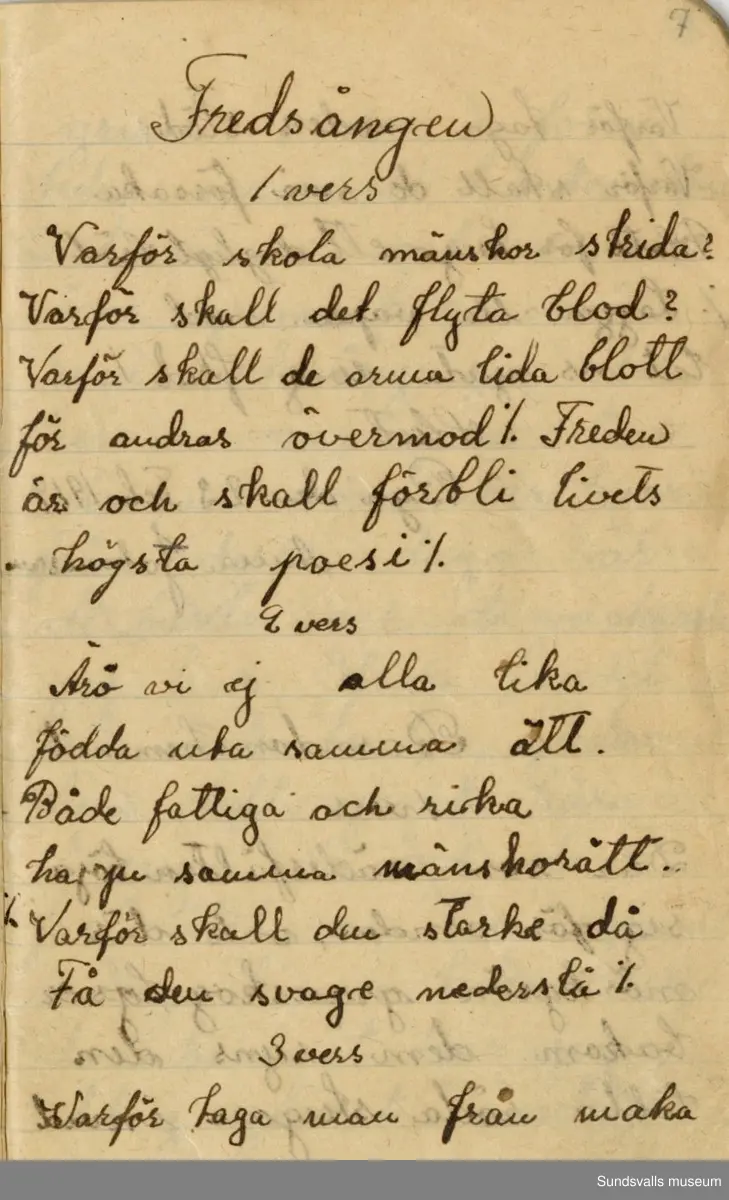 7
Fredsången
1 vers
Varför skola mänskor strida?
Varför skall det flyta blod?
Varför skall de arma lida blott
för andras övermod ./. Freden
är och skall förbli livets
högsta poesi ./.
2 vers
Ärö vi ej alla lika
födda uta samma ätt.
Både fattiga och rika
ha ju samma mänskorätt.
./. Varför skall den starke då
Få den svage nederslå ./.
3 vers
Varför taga man från maka
Sundsvalls museum